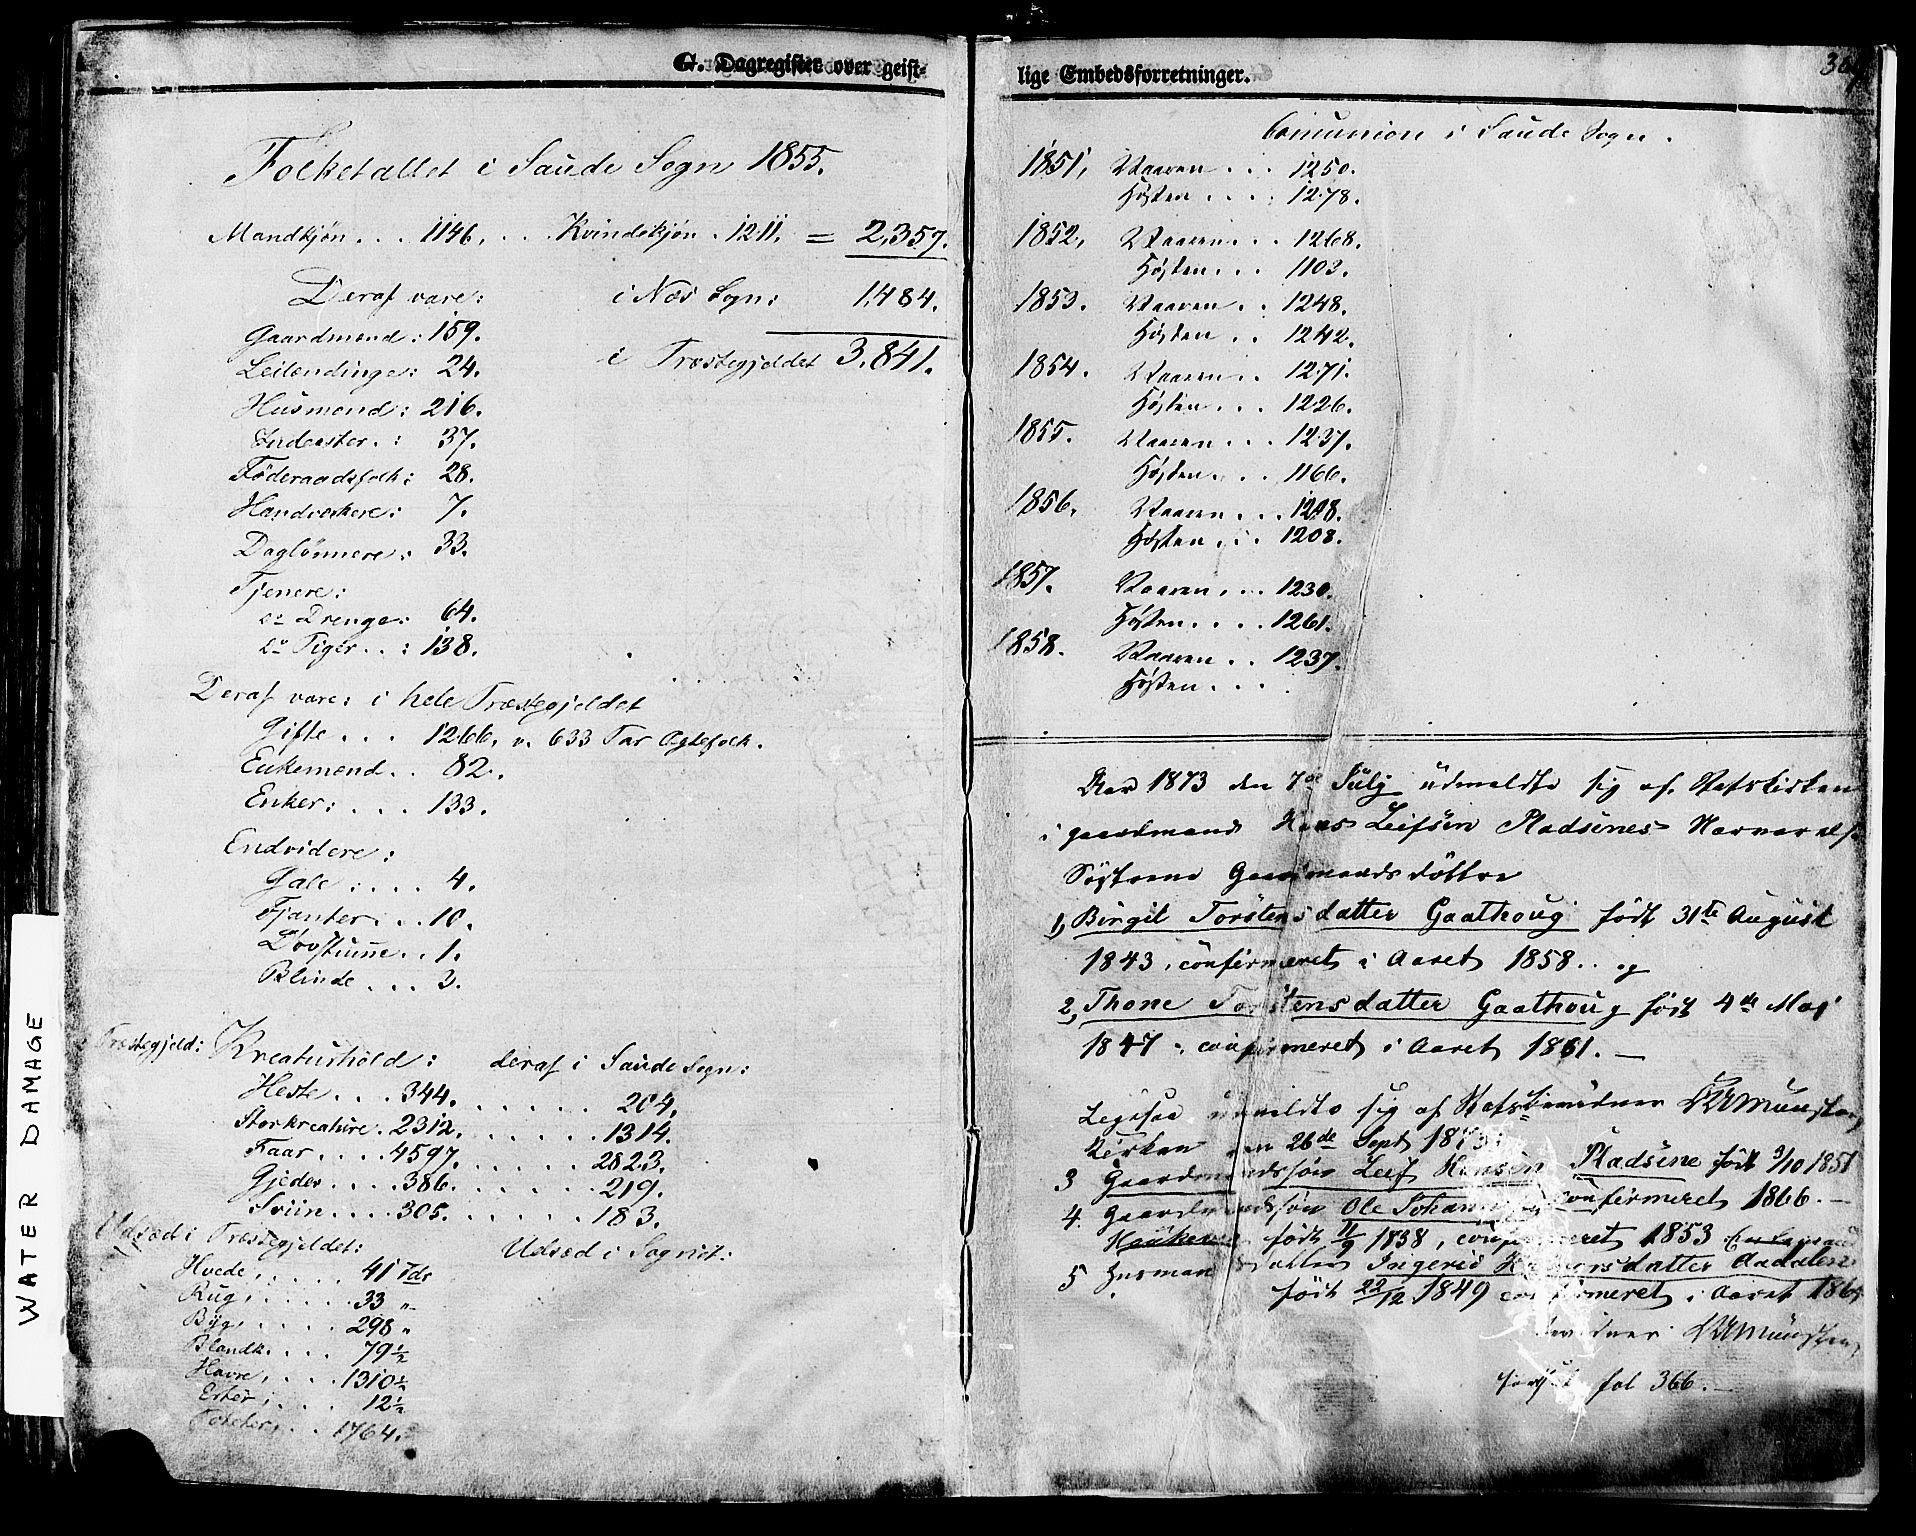 G. Dagregister over geist-
Folketallet i Saude Sogn 1855.
Mandkjön . . . 1146. . . . Kvindekjön . 1211. = 2,357.
Deraf vare: i Næs Sogn: 1,484.
Gaardmænd: 159.
i Præstegjeldet 3.841.
Leilændinge: 24.
Husmænd: 216.
Inderster. : 37.
Föderaadsfolk: 28.
Handverkere: 7.
Daglönnere: 33.
Tjenere:
Drenge: 64.
Piger . . : 138.
Deraf vare: i hele Præstegjeldet
Gifte . . . 1266, v. 633 Par Ægtefolk.
Enkemænd . . 82.
Enker: . . . 133.
Endvidere:
Gale : . . . 4.
Fjanter . . 10.
Dövstumme . . 1.
Blinde . . . 3.
Præstegjeld: Kreaturhold: deraf i Saude Sogn:
Heste . . . 344. . . . . . 204.
Storkreature . 2312. . . . . . 1314.
Faar . . . . 4597. . . . . . 2823.
Gjeder . . . 386. . . . . . 219.
Sviin . . . . 305. . . . . . 183.
Udsæd i Præstegjeldet: Udsæd i Sognet:
Hvede . . . . 41 Tdr
Rug . . . . . 33 "
Byg . . . . . 298 "
Blandk. . . . 79½
Havre . . . . 1310½
Erter . . . . 12½
Poteter . . . 1764.
lige Embedsforretninger.
Comunion i Saude Sogn.
1851, Vaaren . . . 1250.
Høsten . . . . 1278.
1852, Vaaren . . . 1268.
Høsten . . . 1103.
1853. Vaaren . . 1248.
Høsten . . . 1242.
1854. Vaaren . . 1271.
Høsten . . . 1226.
1855. Vaaren . . . 1237.
Høsten . . . 1166.
1856. Vaaren . . . 1248.
Høsten . . . 1208.
1857. Vaaren . . . 1230.
Høsten . . . . 1261.
1858. Vaaren . . 1237.
Høsten . . .
Aar 1873 den 7de July udmeldte sig af Statskirken
i gaardmand Hans Leifsen Pladsenes Nærværelse
Söstrene Gaardmandsdöttre
1, Birgit Torstensdatter Gaathoug født 31te August
1843, confirmeret i Aaret 1858. og
2, Thone Torstensdatter Gaathoug født 4de Maj
1847, confirmeret i Aaret 1861. —
Ligesaa udmeldte sig af Statskirken
Kirken den 26de Sept 1873:
3 Gaardmandssön Leif Hansen Pladsene født 3/10 1851
confirmeret 1866. —
4. Gaardmandssön Ole
født 11/9 1838, confirmeret 1853
5 Husmandsdatter Ingerid Halvorsdatter Aadalen
født 22/12 1849 confirmeret i Aaret
Münster
fortsat fol 366. —
WATER DAMAGE